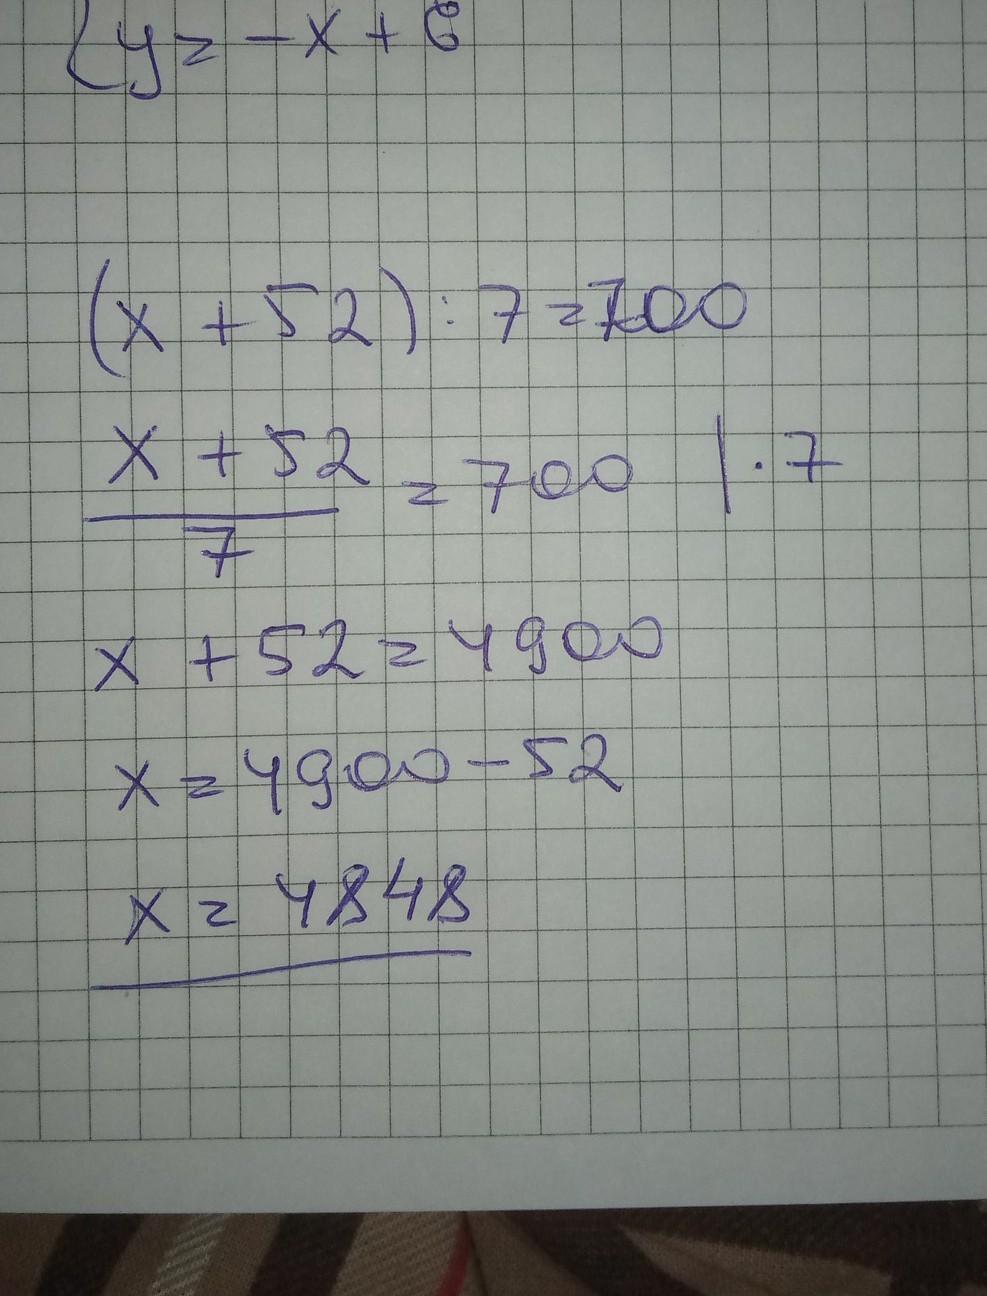 {y = -x + 6
(x + 52) : 7 = 700
x + 52 / 7 = 700 | · 7
x + 52 = 4900
x = 4900 - 52
x = 4848